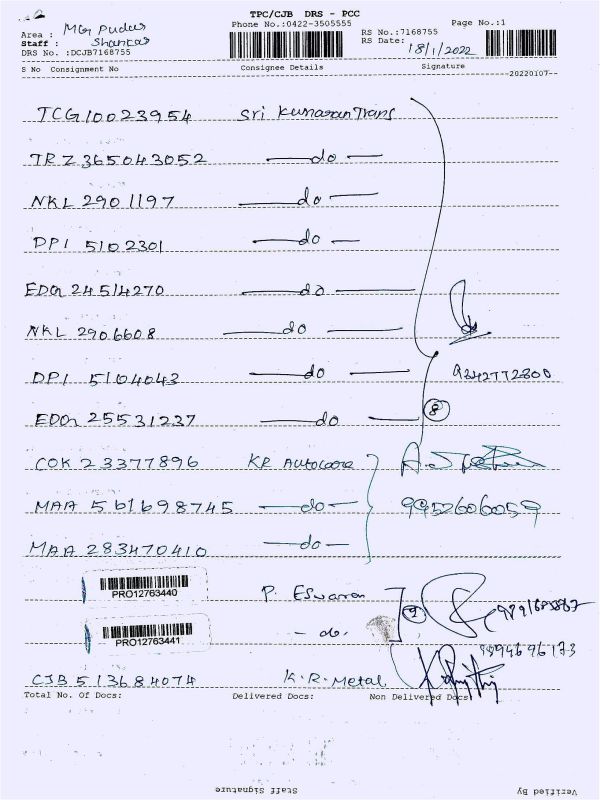 TPC/CJB DRS - PCC
Phone No.:0422-3505555 Page No.:1
Area : MGR Pudur
Staff : Shankar
DRS No. :DCJB7168755
RS No.:7168755
RS Date: 18/1/2022
S No Consignment No Consignee Details Signature
20220107
TCG10023954 Sri Kumaran Trans
TRZ365043052 do
NKL 2901197 do
DPI 5102301 do
EDG 24514270 do
NKL 2906608 do
DPI 5104043 do 9342772800
EDG 25531237 do 8
COK 23377896 KR Autocare
MAA 561698745 do 9952606059
MAA 283470410 do
PRO12763440 P. Eswaran
2
PRO12763441 - do.
CJB513684074 K.R. Metal
Total No. Of Docs: Delivered Docs: Non Delivered Docs:
Staff Signature Verified By